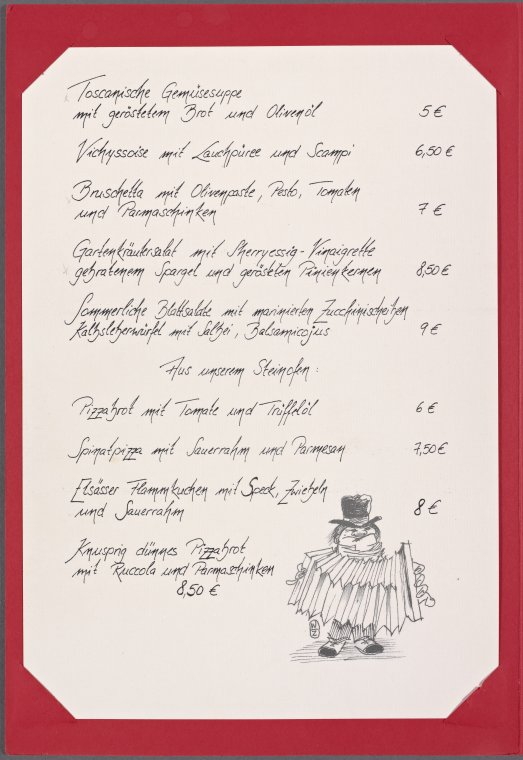 Toscanische Gemüsesuppe
mit geröstetem Brot und Olivenöl 5 €
Vichyssoise mit Lauchpüree und Scampi 6,50 €
Bruschetta mit Olivenpaste, Pesto, Tomaten
und Parmaschinken 7 €
Gartenkräutersalat mit Sherryessig-Vinaigrette
gebratenem Spargel und gerösteten Pinienkernen 8,50 €
Sommerliche Blattsalate mit marinierten Zucchinischeiben
Kalbsleberwürfel mit Salbei, Balsamicojus 9 €
Aus unserem Steinofen:
Pizzabrot mit Tomate und Trüffelöl 6 €
Spinatpizza mit Sauerrahm und Parmesan 7,50 €
Elsässer Flammkuchen mit Speck, Zwiebeln
und Sauerrahm 8 €
Knusprig dünnes Pizzabrot
mit Ruccola und Parmaschinken
8,50 €